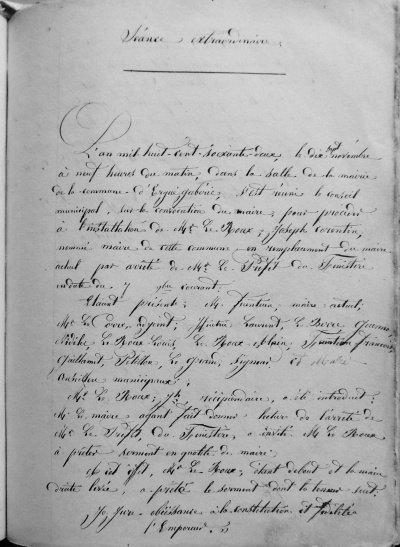 Séance extraordinaire
L'an mil huit-cent-soixante-deux, le dix sept novembre
à neuf heures du matin, dans la salle de la mairie
de la commune d'Ergué-gabéric, s'est réuni le conseil
municipal, sur la convocation du maire; pour procéder
à l'installation de Mr Le Roux, Joseph Corentin,
nommé maire de cette commune en remplacement du maire
actuel par arrêté de Mr le Préfet du Finistère
en date du 7 courant.
Etaient présents: M. maire actuel,
Mr Le adjoint, Laurent, Le Berre
Le Roux Louis, Le Roux Alain, François,
Le et
municipaux;
Mr Le Roux, récipiendaire, a été introduit;
Mr le maire ayant fait donner lecture de l'arrêté de
Mr le Préfet du Finistère, a invité Mr Le Roux
à prêter serment en qualité de maire.
à cet effet, Mr Le Roux, étant debout et la main
droite levée, a prêté le serment dont la teneur suit:
Je jure obéissance à la constitution et fidélité
à l'Empereur.